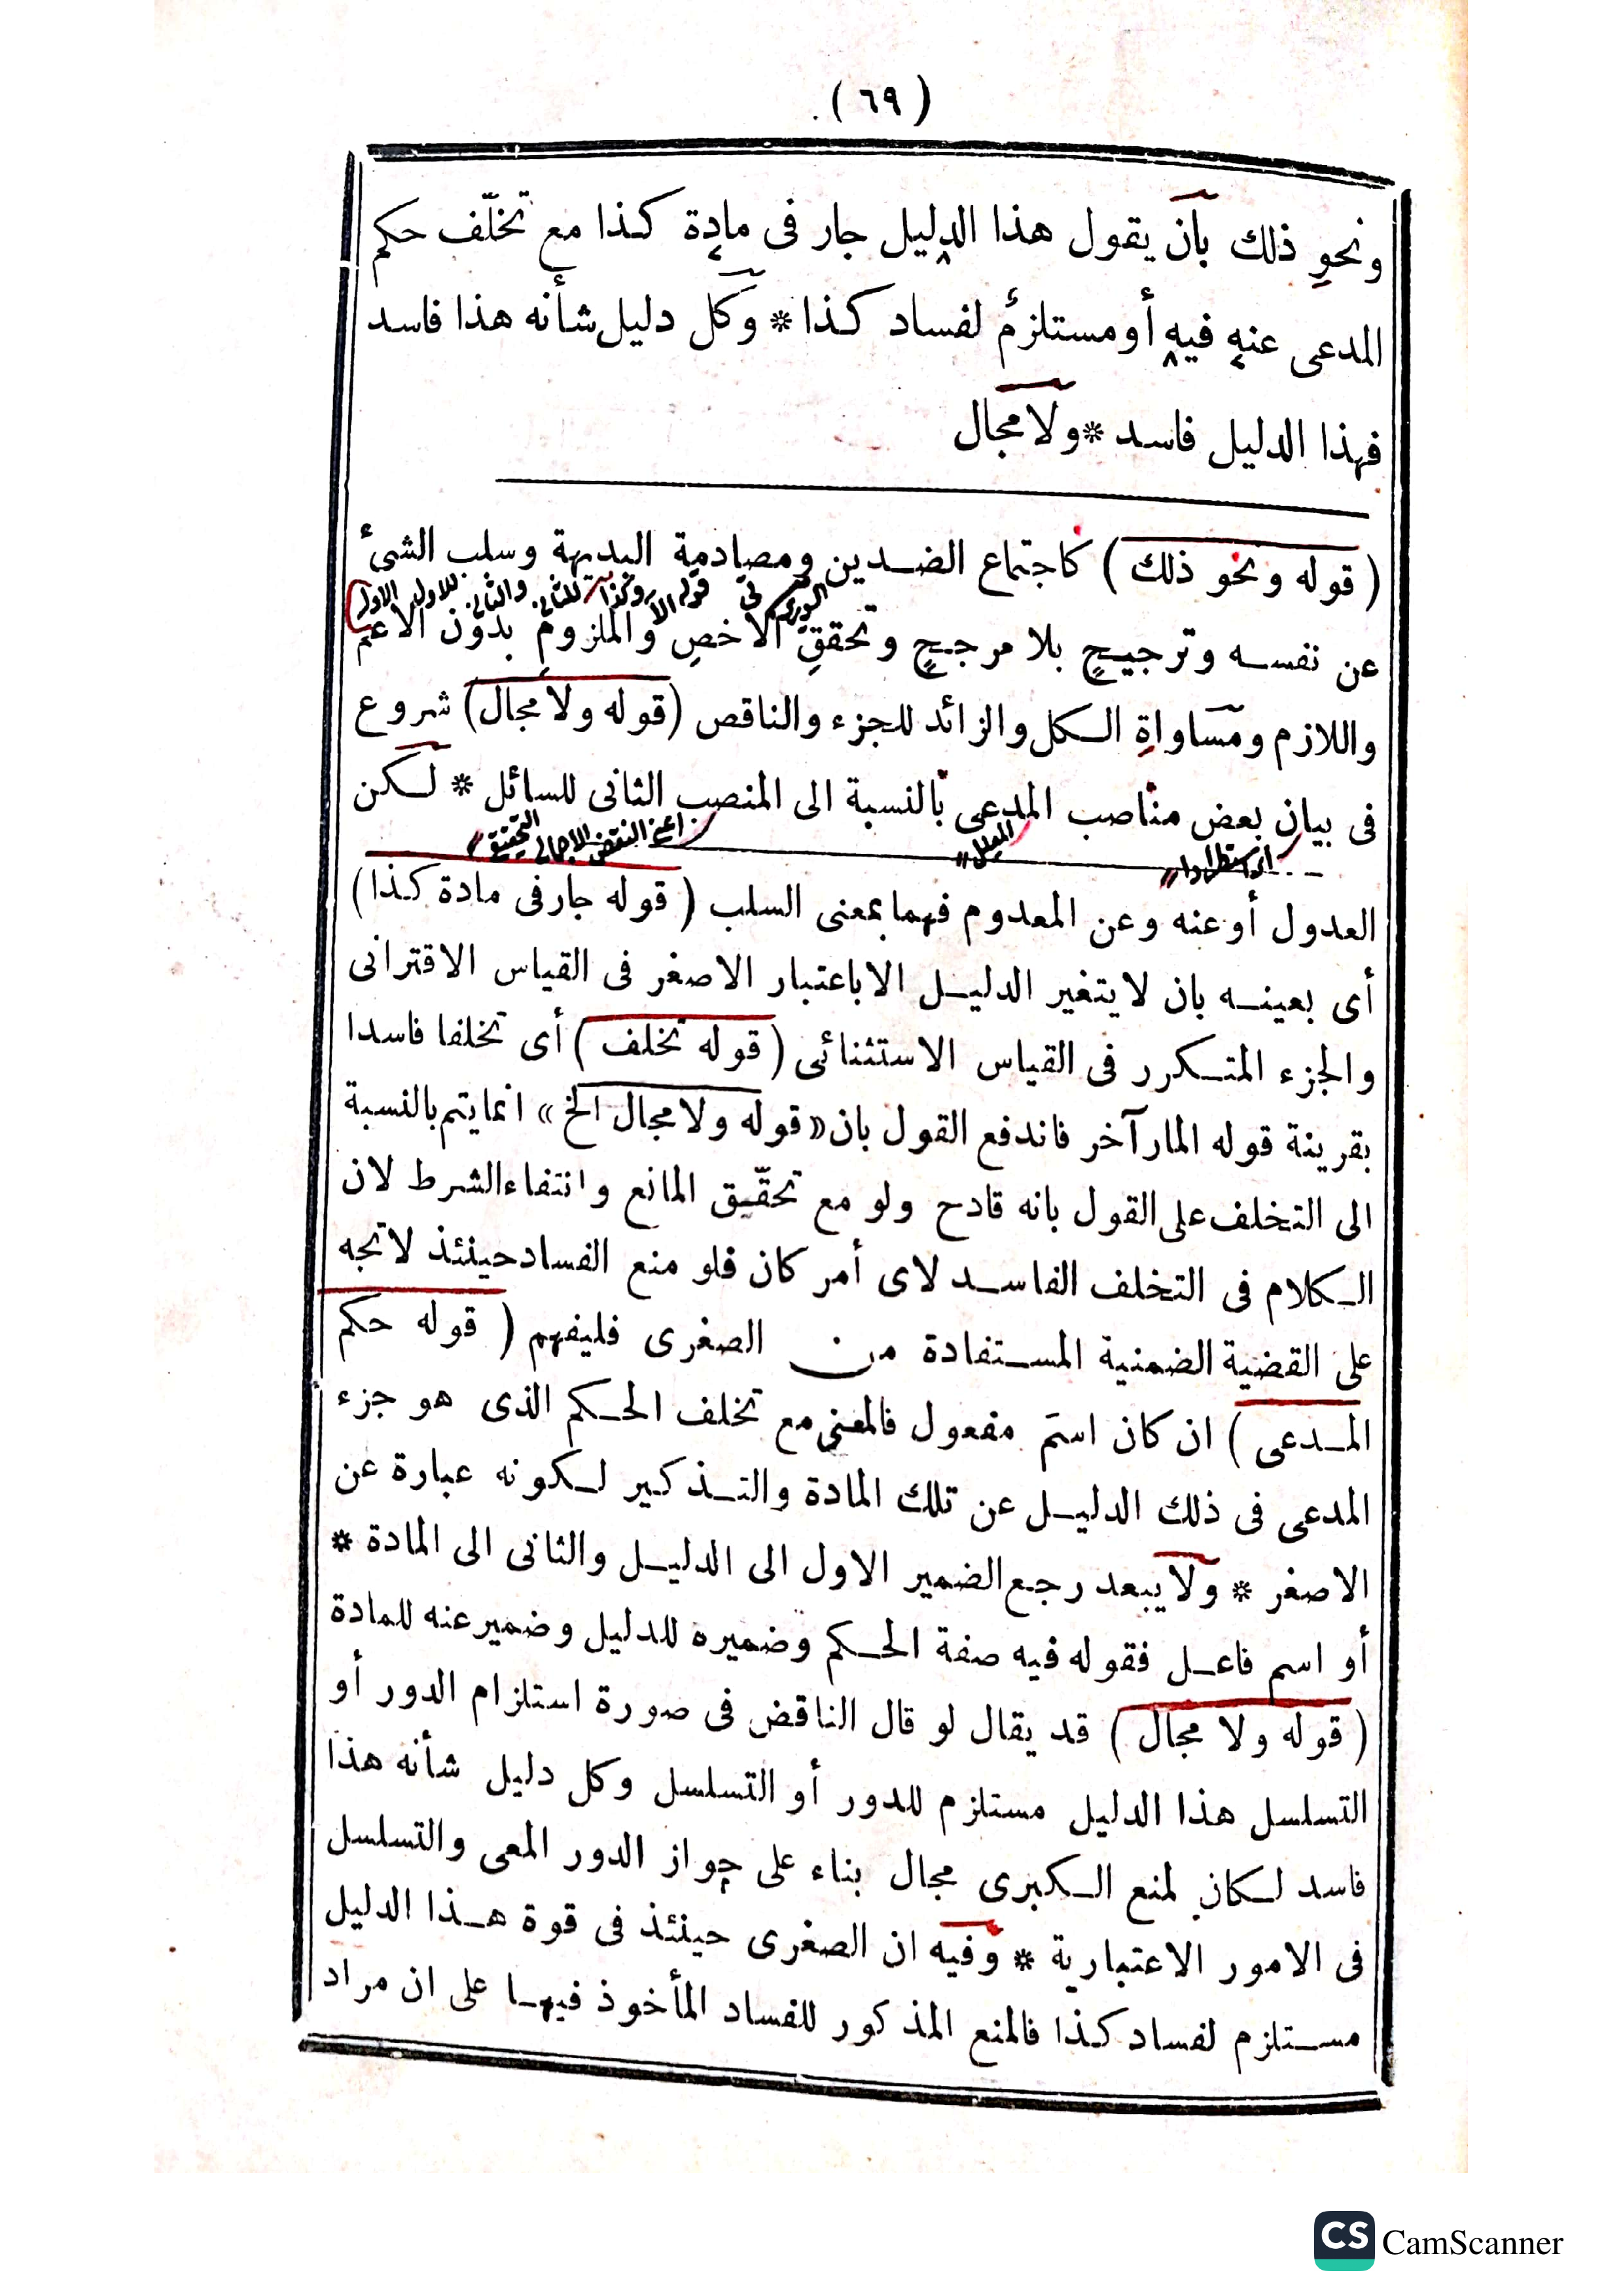 (٦٩)
ونحوِ ذلك بأن يقول هذا الدليل جار فى مادة كذا مع تخلّف حكم
المدعى عنه فيه أو مستلزمٌ لفساد كذا * وكل دليل شأنه هذا فاسد
فهذا الدليل فاسد * ولا مجال
(قوله ونحو ذلك) كاجتماع الضدين ومصادمة البديهة وسلب الشئ
عن نفسه وترجيحٍ بلا مرجحٍ وتحققِ الاخصِ والملزومِ بدون الاعم
واللازم ومساواةِ الكل والزائد للجزء والناقص (قوله ولا مجال) شروع
فى بيان بعض مناصب المدعى بالنسبة الى المنصب الثانى للسائل * لكن
اعنى النقض الاجمالى التحقيقى
المعلل
أى استطرادا
العدول أو عنه وعن المعدوم فهما بمعنى السلب (قوله جار فى مادة كذا)
أى بعينه بان لا يتغير الدليل الا باعتبار الاصغر فى القياس الاقترانى
والجزء المتكرر فى القياس الاستثنائى (قوله تخلف) أى تخلفا فاسدا
بقرينة قوله المار آخر فاندفع القول بان «قوله ولا مجال الخ» انما يتم بالنسبة
الى التخلف على القول بانه قادح ولو مع تحقّيق المانع وانتفاء الشرط لان
الكلام فى التخلف الفاسد لاى أمر كان فلو منع الفساد حينئذ لاتجه
على القضية الضمنية المستفادة من الصغرى فليفهم (قوله حكم
المدعى) ان كان اسمَ مفعول فالمعنى مع تخلف الحكم الذى هو جزء
المدعى فى ذلك الدليل عن تلك المادة والتذكير لكونه عبارة عن
الاصغر * ولا يبعد رجع الضمير الاول الى الدليل والثانى الى المادة *
أو اسم فاعل فقوله فيه صفة الحكم وضميره للدليل وضمير عنه للمادة
(قوله ولا مجال) قد يقال لو قال الناقض فى صورة استلزام الدور أو
التسلسل هذا الدليل مستلزم للدور أو التسلسل وكل دليل شأنه هذا
فاسد لكان لمنع الكبرى مجال بناء على جواز الدور المعى والتسلسل
فى الامور الاعتبارية * وفيه ان الصغرى حينئذ فى قوة هذا الدليل
مستلزم لفساد كذا فالمنع المذكور للفساد المأخوذ فيها على ان مراد
CS CamScanner